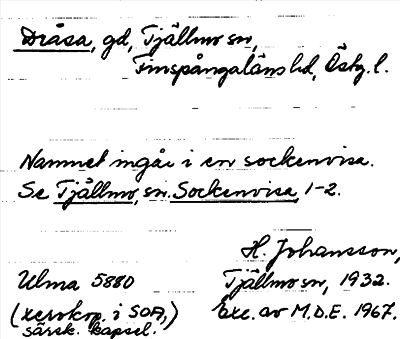 Dråsa, gd, Tjällmo sn,
Finspångaläns hd, Östg. l.
Namnet ingår i en sockenvisa.
Se Tjällmo, sn. Sockenvisa, 1-2.
H. Johansson,
Ulma 5880 Tjällmo sn, 1932.
(xerokop. i SOA,) Exc. av M.D.E. 1967.
särsk. kapsel.